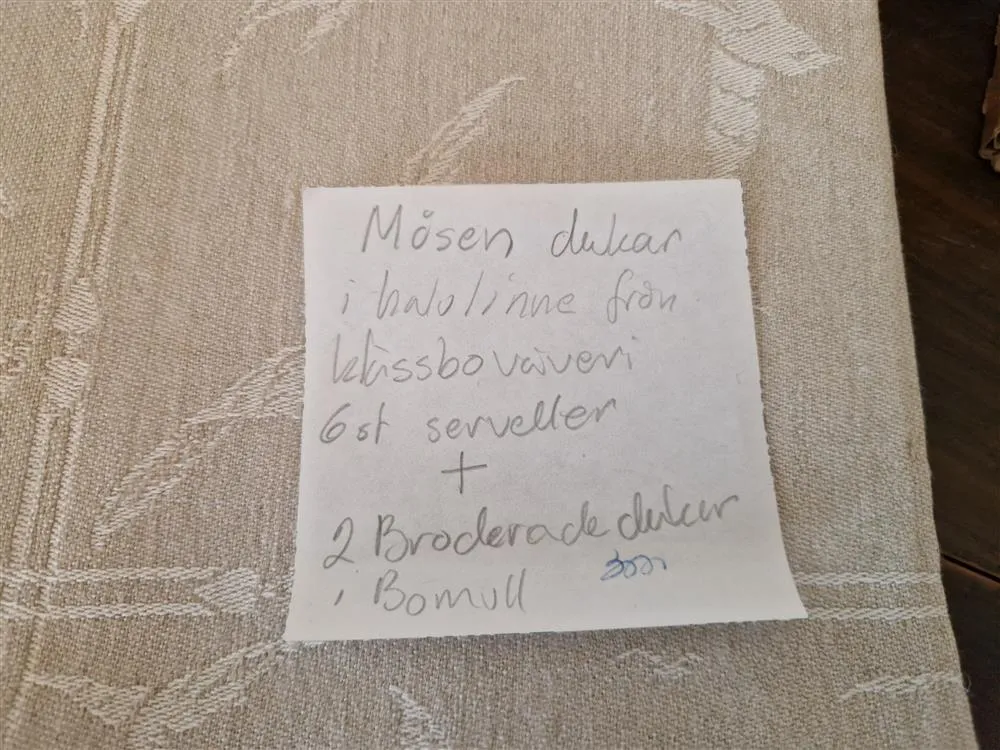 Måsen dukar
i halvlinne från
klässbo väveri
6 st servetter
+
2 Broderade dukar
i Bomull